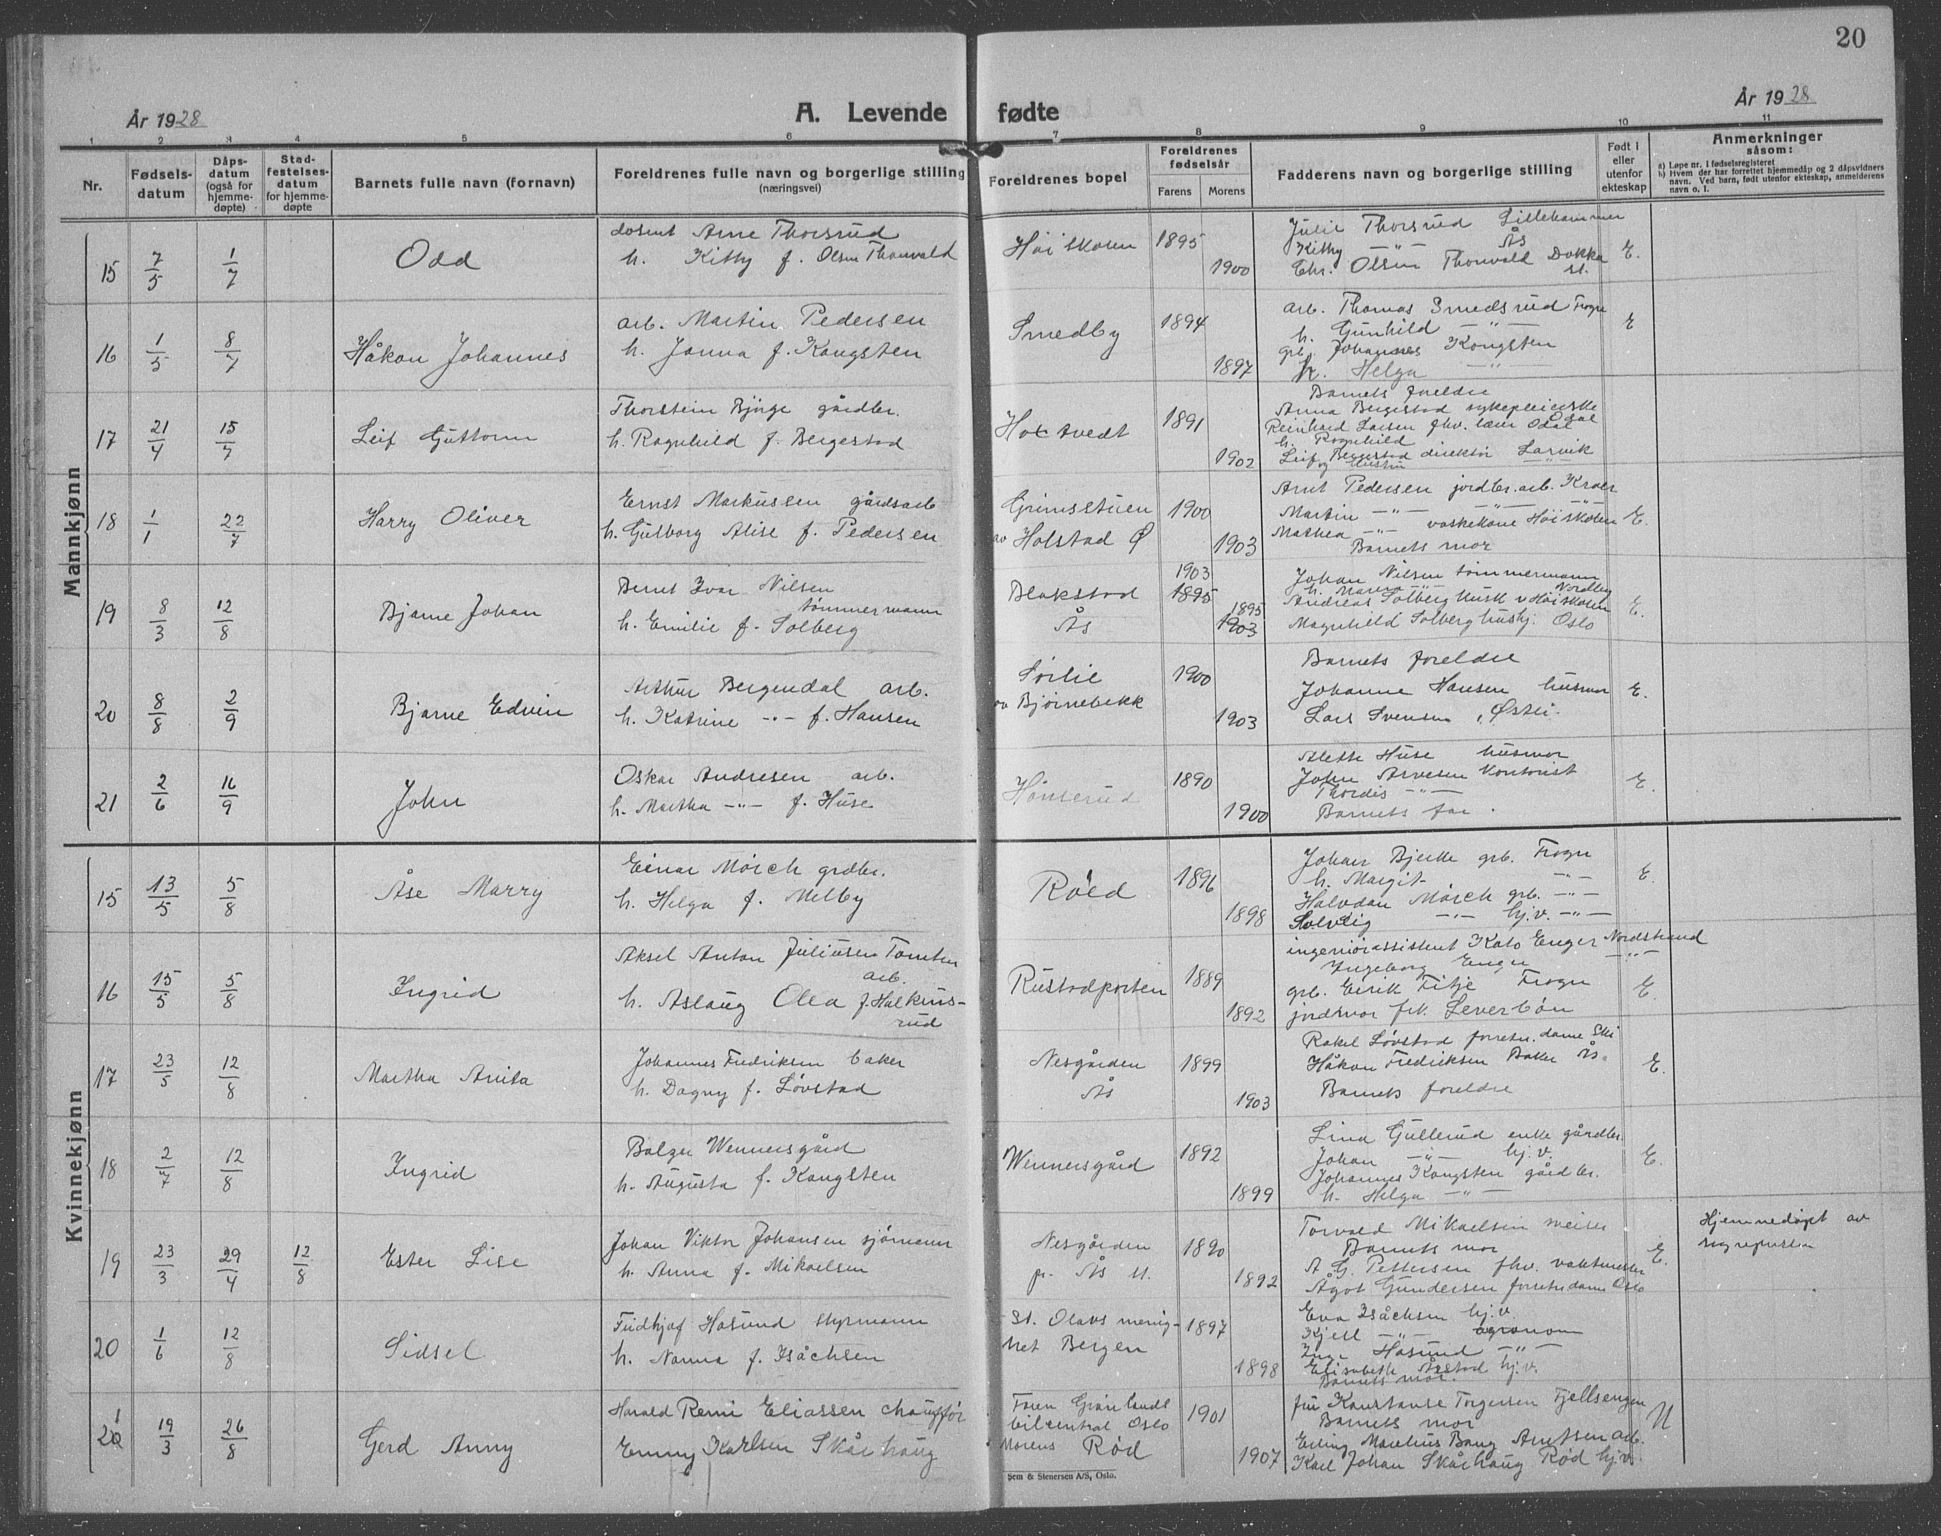 20
År 1928
A. Levende fødte
År 1928
1 2 3 4 5 6 7 8 9 10 11
Nr.
Fødsels-
datum
Dåps-
datum
(også for
hjemme-
døpte)
Stad-
festelses-
datum
for hjemme-
døpte
Barnets fulle navn (fornavn)
Foreldrenes fulle navn og borgerlige stilling
(næringsvei)
Foreldrenes bopel
Foreldrenes
fødselsår
Farens Morens
Fadderens navn og borgerlige stilling
Født i
eller
utenfor
ekteskap
Anmerkninger
såsom:
a) Løpe nr. i fødselsregisteret
b) Hvem der har forrettet hjemmedåp og 2 dåpsvidners
navn. Ved barn, født utenfor ekteskap, anmelderens
navn o. l.
Mannkjønn
15 7/5 1/7 Odd
dosent Arne Thorsrud
h. Kitty f. Olsen Thonvald
Høiskolen 1895 1900
Julie Thorsrud Lillehammer
Kitty -"- Ås
Chr. Olsen Thonvald Dokka
st.
E.
16 1/5 8/7 Håkon Johannes
arb. Martin Pedersen
h. Janna f. Kongsten
Smedby 1894 1897
arb. Thomas Smedsrud Frogn
h. Gunhild -"-
grb. Johannes Kongsten
h. Helga -"-
E
17 21/4 15/7 Leif Guttorm
Thorstein Bjørge gårdbr.
h. Ragnhild f. Bergestad
Holtvedt 1891 1902
Barnets foreldre
Anna Bergestad sykepleierske
Reinhard Larsen fhv. lærer Odal
h. Ragnhild Odal
Leif Bergestad direktør Larvik
og hustru -"-
18 1/1 22/7 Harry Oliver
Ernst Markussen gårdsarb
h. Gulborg Alise f. Pedersen
Grimsstuen
av Holstad Ø 1900 1903
Arnt Pedersen jordbr.arb. Kroer
Martin -"- -"-
Mathea -"- vaskekone Høiskolen
Barnets mor
E.
19 8/3 12/8 Bjarne Johan
Bernt Ivar Nilsen
tømmermann
h. Emilie f. Solberg
Blakstad
Ås
1903
1895
1895
1903
Johan Nilsen tømmermann
h. Maren -"- Nordby
Andreas Solberg kusk v Høiskolen
Magnhild Solberg hushj. Oslo
E.
20 8/8 2/9 Bjarne Edvin
Arthur Bergendal arb.
h. Katrine -"- f. Hansen
Sørlie
av Bjørnebekk 1900 1903
Barnets foreldre
Johanne Hansen husmor
Lars Svensen
E.
21 2/6 16/9 John
Oskar Andresen arb.
h. Martha -"- f. Huse
Hønserud 1890 1900
Alette Huse husmor
John Arvesen kontorist
Thordis -"-
Barnets far.
E.
Kvinnekjønn
15 13/5 5/8 Åse Marry
Einar Mörch grdbr.
h. Helga f. Melby
Røed 1896 1898
Johan Bjerke grb. Frogn
h. Margit -"-
Halvdan Mörch grb. -"-
Solveig -"- hj.v. -"-
E.
16 15/5 5/8 Ingrid
Aksel Anton Juliussen Tomter
arb.
h. Aslaug Olea f. Halkins-
rud
Rustadporten 1889 1892
ingeniørassistent Kato Enger Nordstrand
Ingeborg Enger -"-
grb. Eirik Fitje Frogn
jordmor frk. Leverbön
E.
17 23/5 12/8 Martha Anita
Johannes Fredriksen baker
h. Dagny f. Løvstad
Nesgården
Ås 1899 1903
Rakel Løvstad forretn. dame Ski
Håkon Fredriksen Baker Ås
Barnets foreldre
E.
18 2/7 12/8 Ingrid
Balzer Wennersgård
h. Augusta f. Kongsten
Wennersgård 1892 1899
Lina Gullerud enke gårdbr.
Johan -"- hj.v.
Johannes Kongsten gårdbr.
h. Helga -"-
E.
19 23/3 29/4 12/8 Ester Lise
Johan Viktor Johansen sjømann
h. Anna f. Mikaelsen
Nesgården
pr. Ås st. 1890 1892
Torvald Mikaelsen
Barnets mor
A G. Pettersen fhv. vaktmester
Ågot Gundersen forretn.dame Oslo
E.
Hjemmedøpt av
sognepresten
20 1/6 12/8 Sidsel
Fridtjof Hasund styrmann
h. Nanna f. Isåchsen
St. Olavs menig-
het Bergen 1897 1898
Eva Isåchsen hj.v.
Kjell -"- agronom
Inge Hasund -"-
Elisabeth Åstad hj.v.
Barnets mor.
21 19/3 26/8 Gerd Anny
Harald Remi Eliassen chauffør
Emmy Karlsen Skårhaug
Faren Grønlands
bilcentral Oslo
Morens Rød 1901 1907
fru Konstanse Torgersen Fjellsengen
Barnets mor
Erling Marelius Bang Arntsen arb.
Karl Johan Skårhaug Rød hj.v.
U
Sem & Stenersen A/S, Oslo.